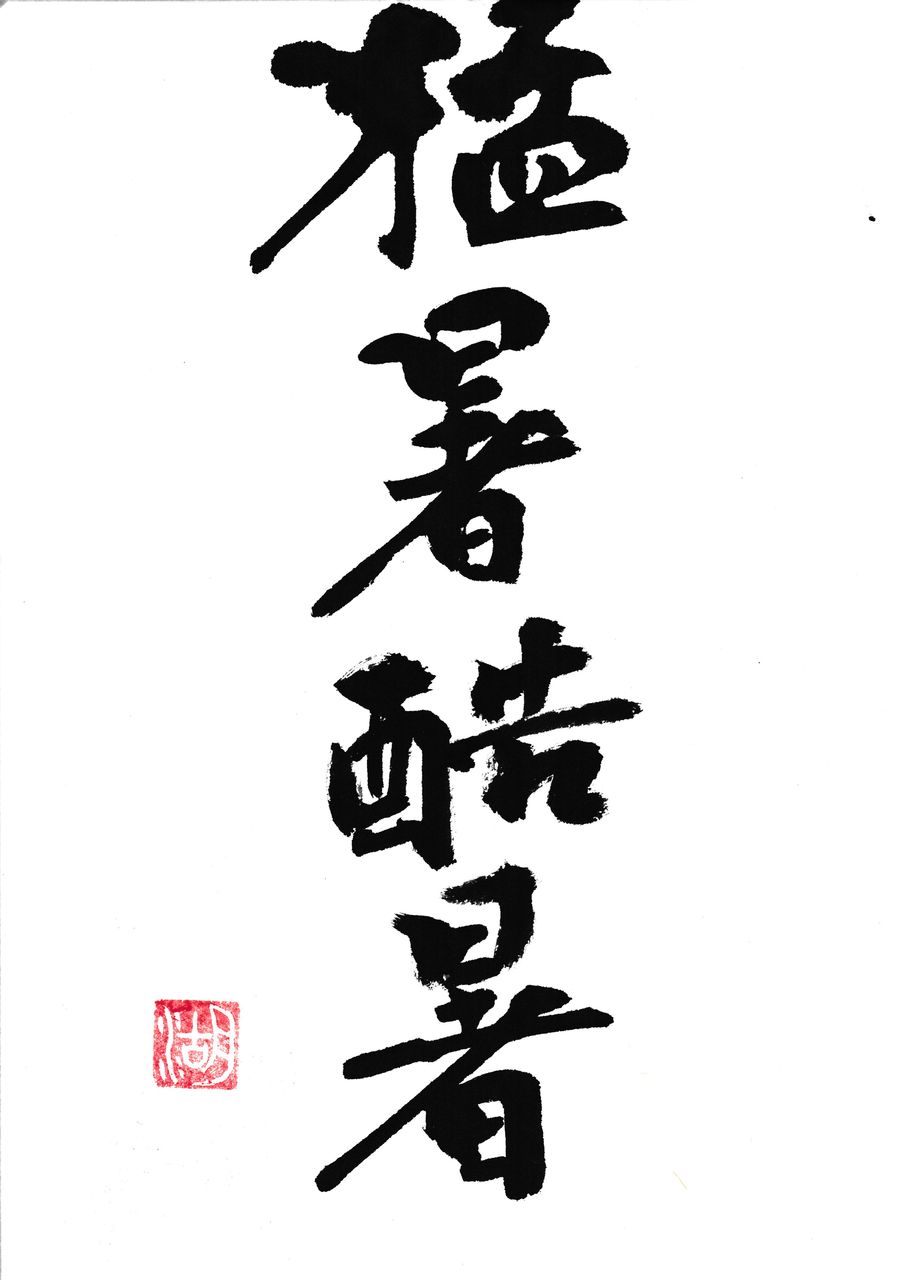 猛暑酷暑
湖